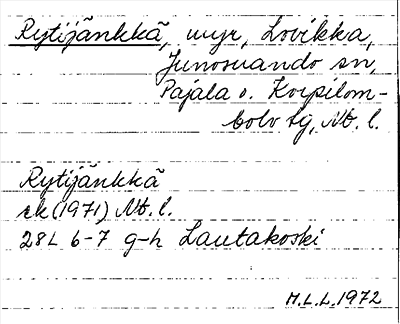 Rytijänkkä, myr, Lovikka,
Junosuando sn,
Pajala o. Korpilom-
bolo tg, Nb. l.
Rytijänkkä
ek (1971) Nb. l.
28L 6-7 g-h Lautakoski
M.L.L. 1972